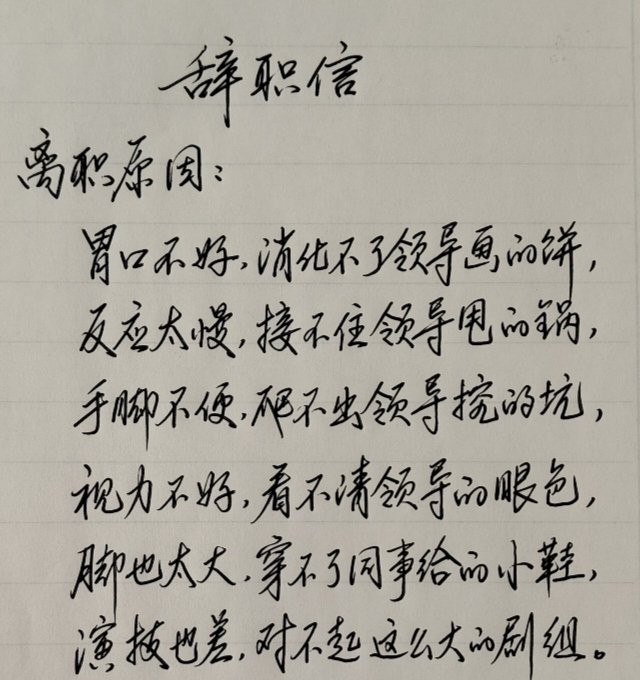 辞职信
离职原因：
胃口不好，消化不了领导画的饼，
反应太慢，接不住领导甩的锅，
手脚不便，爬不出领导挖的坑，
视力不好，看不清领导的眼色，
脚也太大，穿不了同事给的小鞋，
演技也差，对不起这么大的剧组。